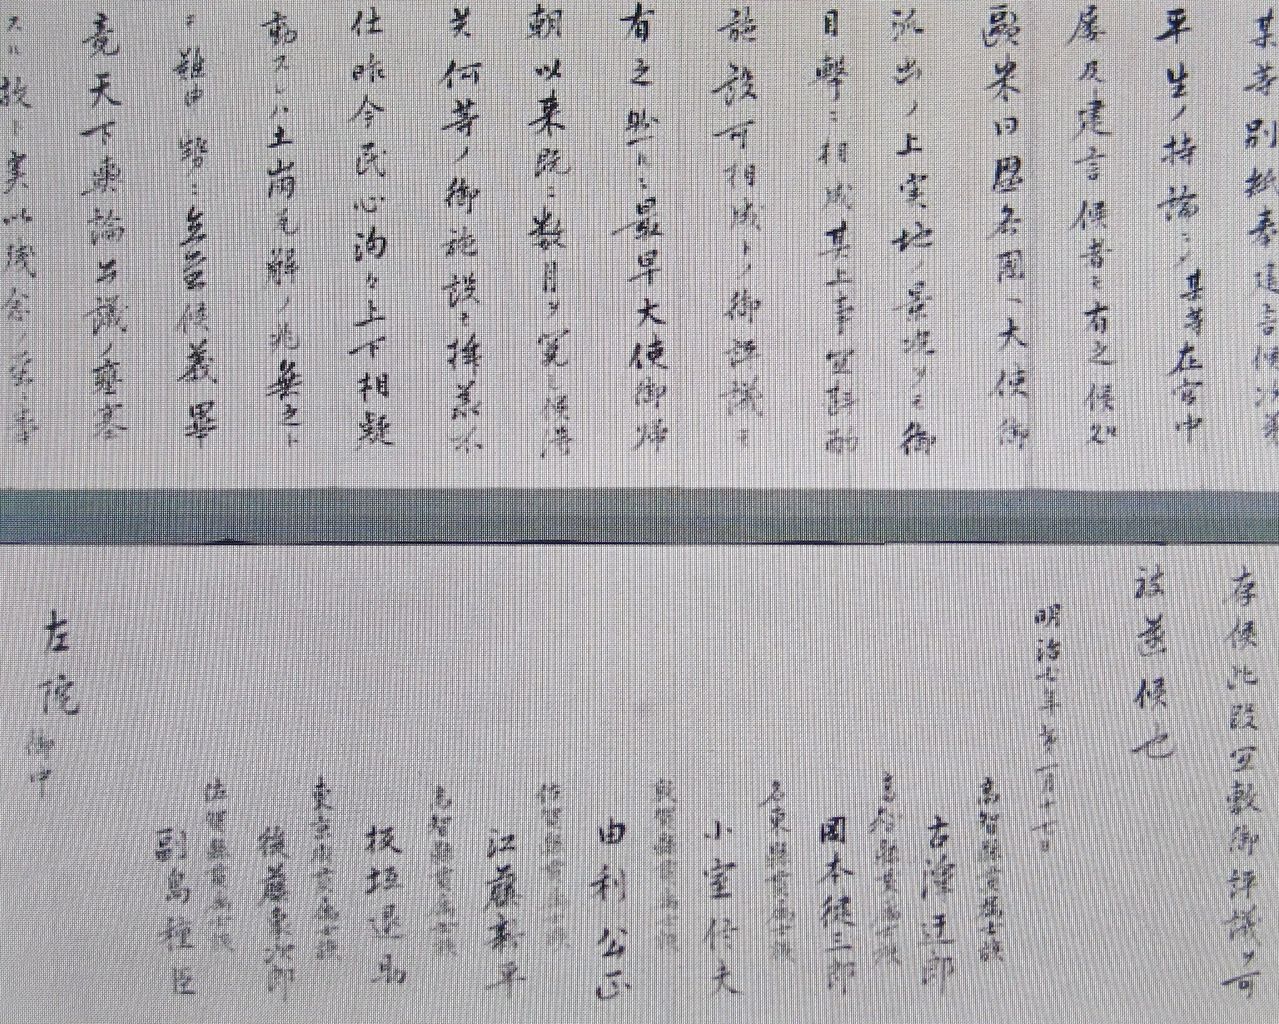 某等別紙奉建言候次第
平生ノ持論ニシテ某等在官中
屡及建言候者モ有之候処
歐米同盟各国ヘ大使御
派出ノ上実地ノ景況ヲモ御
目撃ニ相成其上事宜斟酌
施設可相成トノ御評議モ
有之然ルニ最早大使御帰
朝以来既ニ数月ヲ閲シ候得
共何等ノ御施設モ拝承不
仕昨今民心洶々上下相疑
動スレハ土崩瓦解ノ兆無之ト
モ難申勢ニ立至候義畢
竟天下輿論公議ノ壅塞
スル故ト実以残念ノ至ニ奉
存候此段宜敷御評議ヲ可
被遂候也
明治七年第一月十七日
高知縣貫属士族
古澤迂郎
高知縣貫属士族
岡本健三郎
名東縣貫属士族
小室信夫
敦賀縣貫属士族
由利公正
佐賀縣貫属士族
江藤新平
高知縣貫属士族
板垣退助
東京府貫属士族
後藤象次郎
佐賀縣貫属士族
副島種臣
左院御中